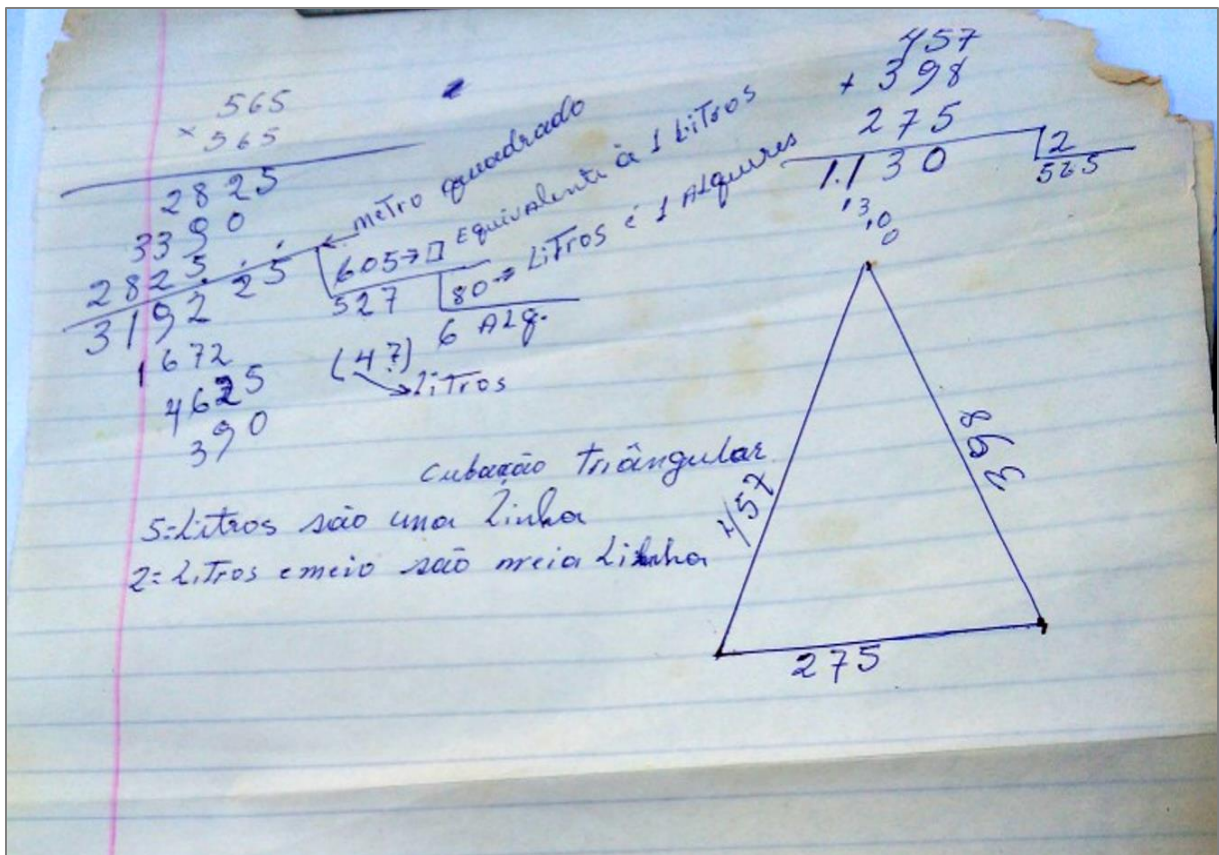 565
× 565
2825
3390
2825
319225
1672
4625
390
← metro quadrado
605→□ Equivalenti à 1 LiTros
527
80→ LiTros é 1 Alqueires
6 Alq.
(47)
→LiTros
457
+ 398
275
1.130
2
565
130
00
Cubação Triângular
5=Litros são uma Linha
2=LiTros e meio são meia Linha
457
398
275